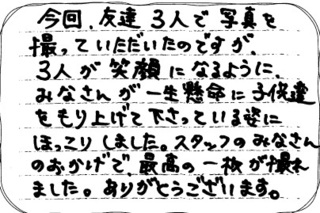 今回、友達3人で写真を
撮っていただいたのですが、
3人が笑顔になるように、
みなさんが一生懸命に子供達
をもり上げて下さっている姿に
ほっこりしました。スタッフのみなさん
のおかげで、最高の一枚が撮れ
ました。ありがとうございます。